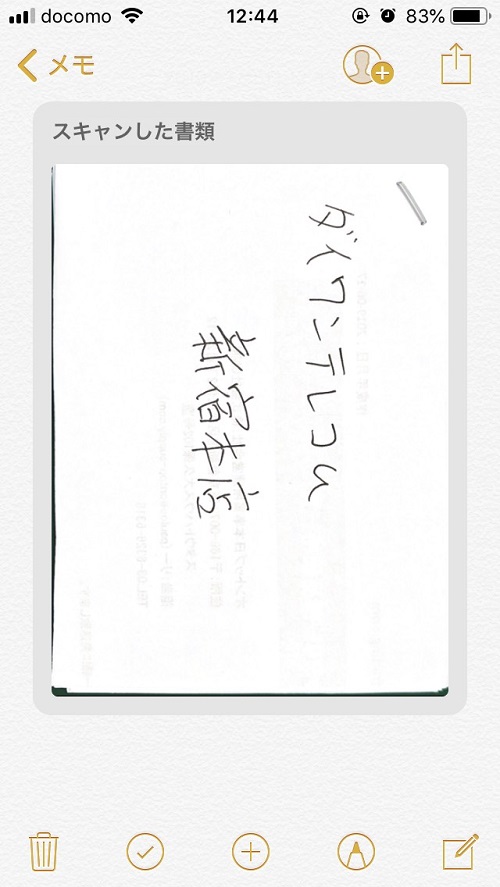 docomo 12:44 83%
メモ
スキャンした書類
ダイワンテレコム
新宿本店